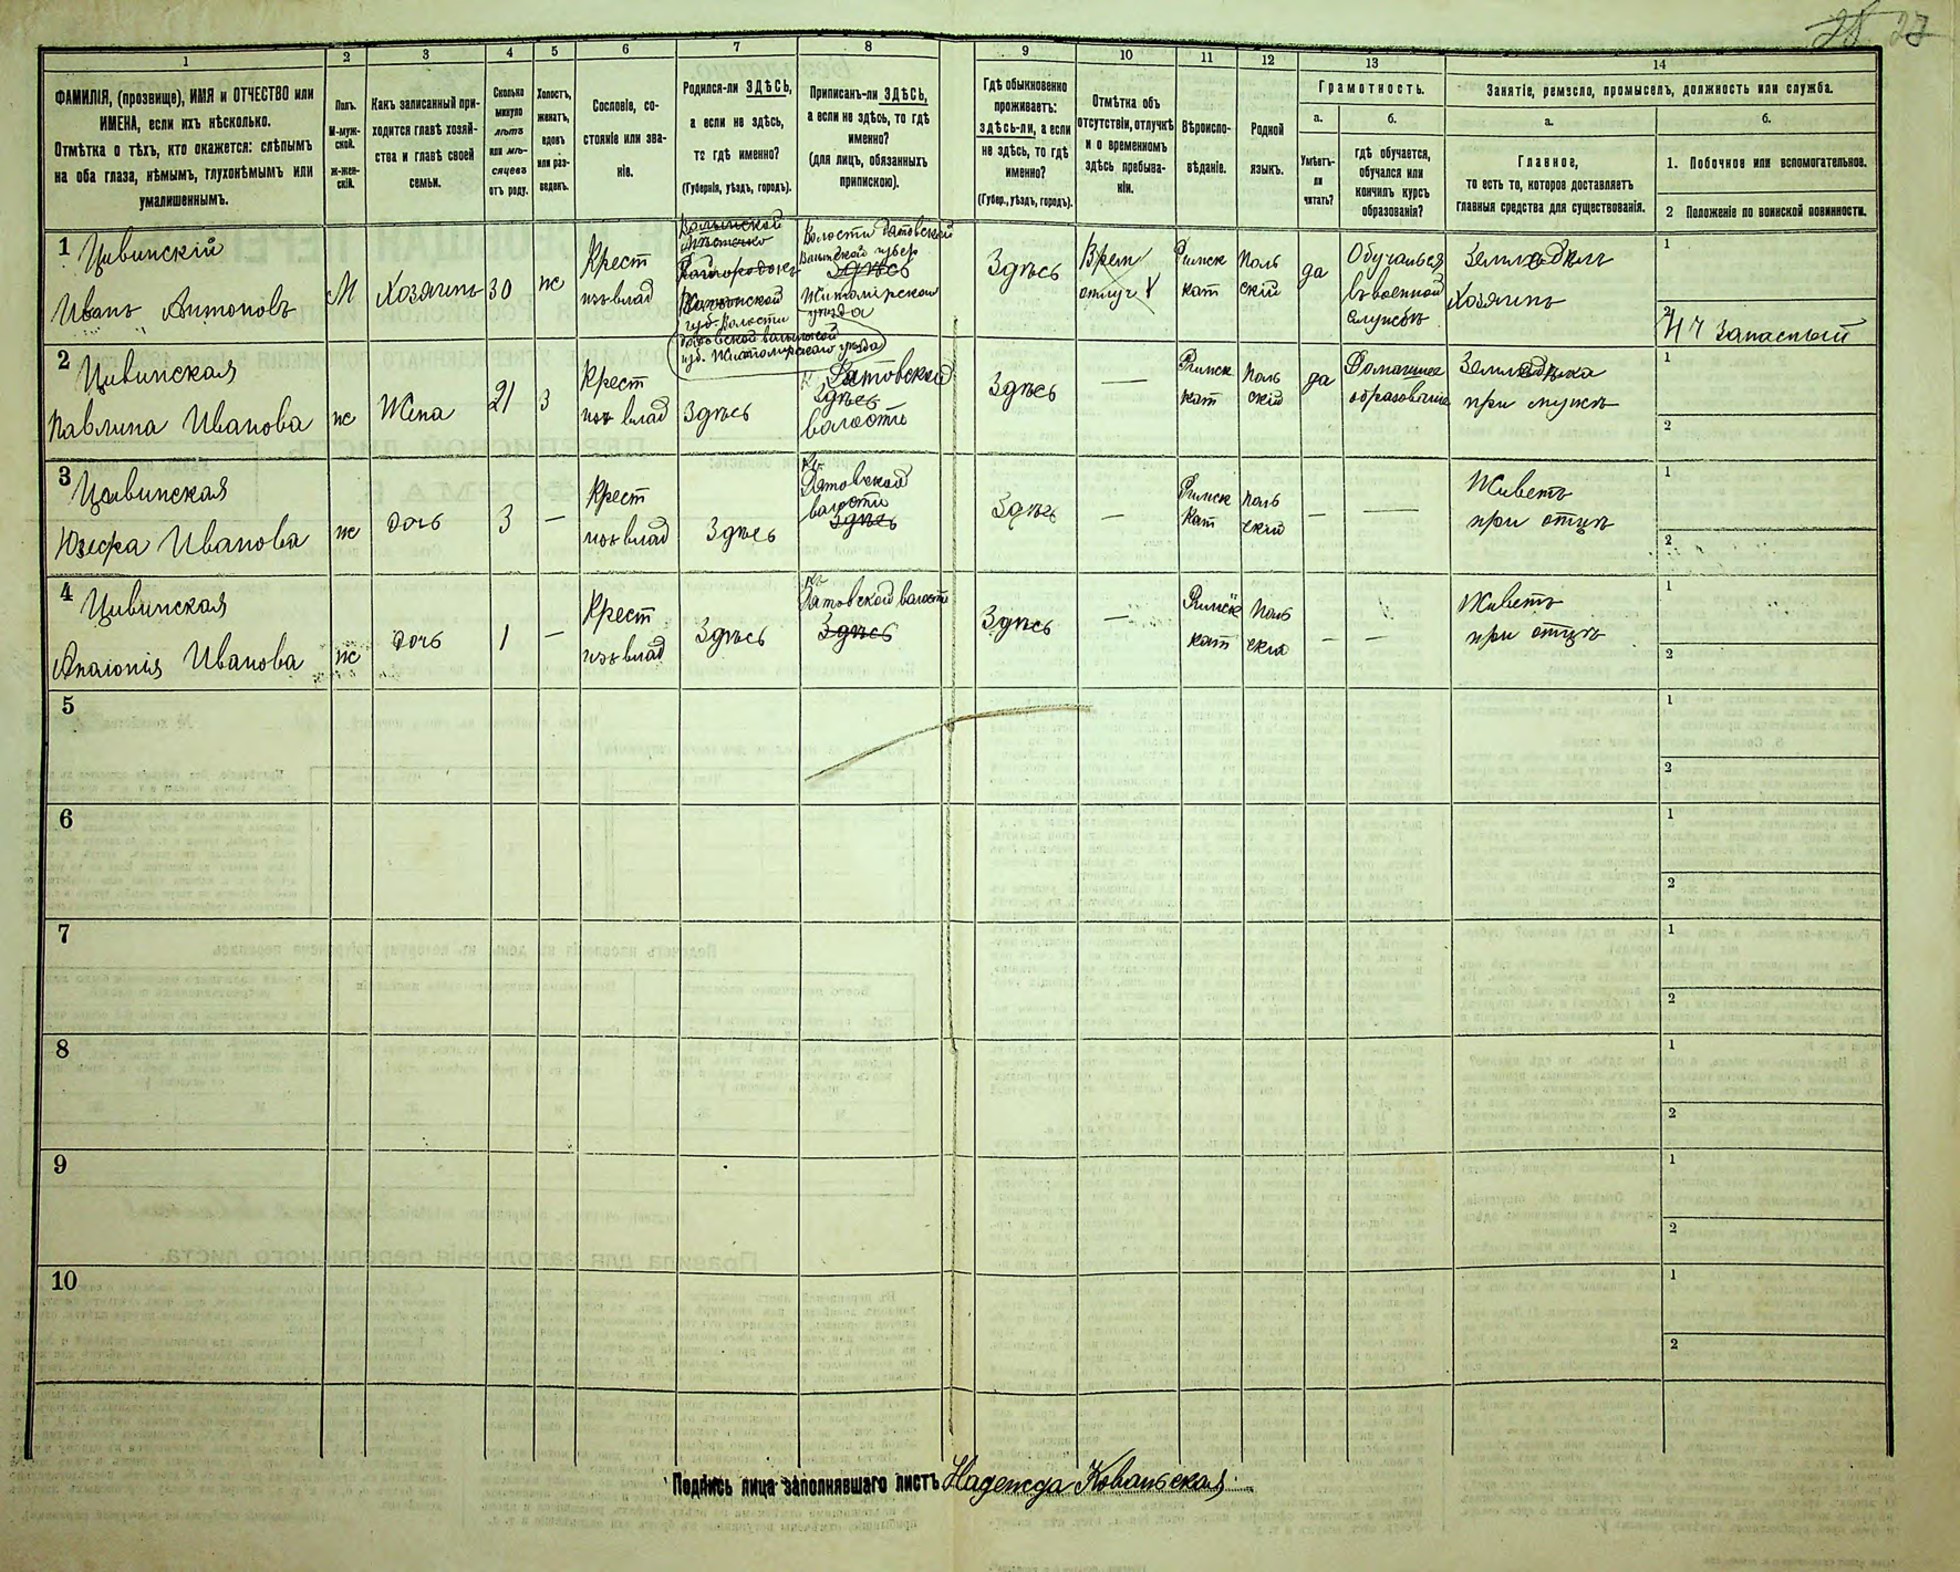 27
1
2
3
4
5
6
7
8
9
10
11
12
13
14
ФАМИЛІЯ, (прозвище), ИМЯ и ОТЧЕСТВО или
ИМЕНА, если ихъ нѣсколько.
Отмѣтка о тѣхъ, кто окажется: слѣпымъ
на оба глаза, нѣмымъ, глухонѣмымъ или
умалишеннымъ.
Полъ.
М-муж-
ской.
ж-жен-
скій.
Какъ записанный при-
ходится главѣ хозяй-
ства и главѣ своей
семьи.
Сколько
минуло
лѣтъ
или мѣ-
сяцевъ
отъ роду.
Холостъ,
женатъ,
вдовъ
или раз-
веденъ.
Сословіе, со-
стояніе или зва-
ніе.
Родился-ли ЗДѢСЬ,
а если не здѣсь,
то гдѣ именно?
(Губернія, уѣздъ, городъ).
Приписанъ-ли ЗДѢСЬ,
а если не здѣсь, то гдѣ
именно?
(для лицъ, обязанныхъ
припискою).
Гдѣ обыкновенно
проживаетъ:
здѣсь-ли, а если
не здѣсь, то гдѣ
именно?
(Губер., уѣздъ, городъ).
Отмѣтка объ
отсутствіи, отлучкѣ
и о временномъ
здѣсь пребыва-
ніи.
Вѣроиспо-
вѣданіе.
Родной
языкъ.
Грамотность.
а.
Умѣетъ-
ли
читать?
б.
гдѣ обучается,
обучался или
кончилъ курсъ
образованія?
Занятіе, ремесло, промыселъ, должность или служба.
а.
Главное,
то есть то, которое доставляетъ
главныя средства для существованія.
б.
1. Побочное или вспомогательное.
2 Положеніе по воинской повинности.
1
Цивинскій
Иванъ Антоновъ
М
Хозяинъ
30
ж
Крест
изъ влад
Волынской
губ. Волости
губ. Житомирскаго уѣзда
Волости
Здѣсь
Житомирскаго
уѣзда
Здѣсь
Врем
отлуч
Римск
кат
Поль
скій
да
Обучался
въ военной
службѣ
Хозяинъ
1
2
запасный
2
Цивинская
Павлина Иванова
ж
Жена
21
З
Крест
изъ влад
Здѣсь
Здѣсь
волости
Здѣсь
—
Римск
кат
Поль
скій
да
Домашнее
образованіе
при мужѣ
1
2
3
Цивинская
Юзефа Иванова
ж
дочь
3
—
Крест
изъ влад
Здѣсь
волости
Здѣсь
Здѣсь
—
Римск
кат
Поль
скій
—
—
Живетъ
при отцѣ
1
2
4
Цивинская
Апалонія Иванова
ж
дочь
1
—
Крест
изъ влад
Здѣсь
волости
Здѣсь
Здѣсь
—
Римск
кат
Поль
скій
—
—
Живетъ
при отцѣ
1
2
5
1
2
6
1
2
7
1
2
8
1
2
9
1
2
10
1
2
Подпись лица заполнявшаго листъ Надежда Ковальская